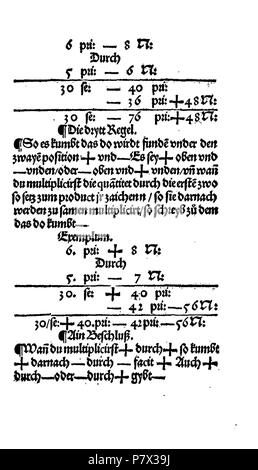 6 pri: — 8 N:
Durch
5 pri: — 6 N:
30 se: — 40 pri:
— 36 pri: + 48 N:
30 se: — 76 pri: + 48 N:
¶Die drytt Regel.
¶So es kumbt das do wirdt fundē vnder den
zwayē position + vnd — Es sey + oben vnd
— vnden / oder — oben vnd + vnden / vñ wañ
du multiplicirst die quātitet durch die erstē zwo
so setz zum product ir zaichenn / so sie darnach
werden zu samen multiplicirt / so schreyb zů dem
das do kumbt —
Exemplum.
6. pri: + 8 N:
Durch
5. pri: — 7 N:
30. se: + 40 pri:
— 42 pri: — 56 N:
30/se: + 40. pri: — 42 pri: — 56 N:
¶Ain Beschluß.
¶Wañ du multiplicirst + durch + so kumbt
+ darnach — durch — facit + Auch +
durch — oder — durch + gybt —
alamy
P7X39J